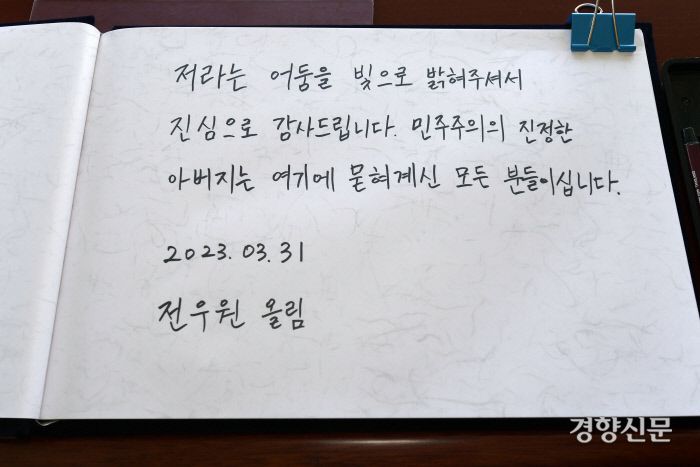 저라는 어둠을 빛으로 밝혀주셔서
진심으로 감사드립니다. 민주주의의 진정한
아버지는 여기에 묻혀계신 모든 분들이십니다.
2023. 03. 31
전우원 올림
경향신문